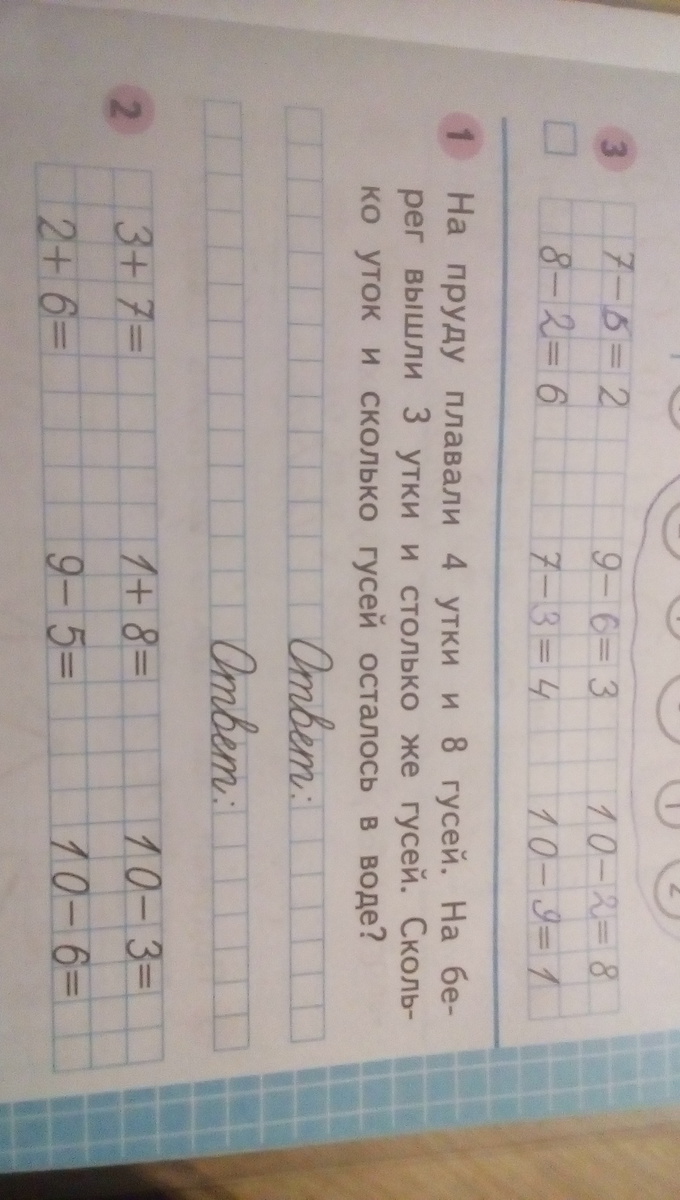 3 7-5=2 9-6=3 10-2=8
8-2=6 7-3=4 10-9=1
1 На пруду плавали 4 утки и 8 гусей. На бе-
рег вышли 3 утки и столько же гусей. Сколь-
ко уток и сколько гусей осталось в воде?
Ответ:
Ответ:
2 3+7= 1+8= 10-3=
2+6= 9-5= 10-6=